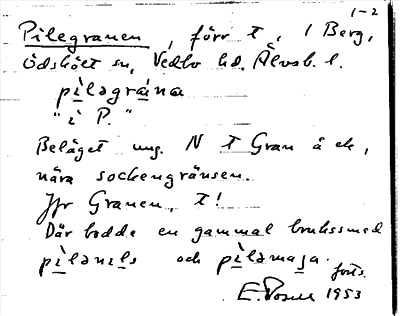 1-2
Pilegranen, förr t, 1 Berg,
Ödskölt sn, Vedbo hd. Älvsb. l.
pìləgrána
"i P."
Beläget ung. N t Gran å ek,
nära sockengränsen.
Jfr Granen, t!
Där bodde en gammal brukssmed
pìlənils och pìləmaja.
forts.
E. 1953